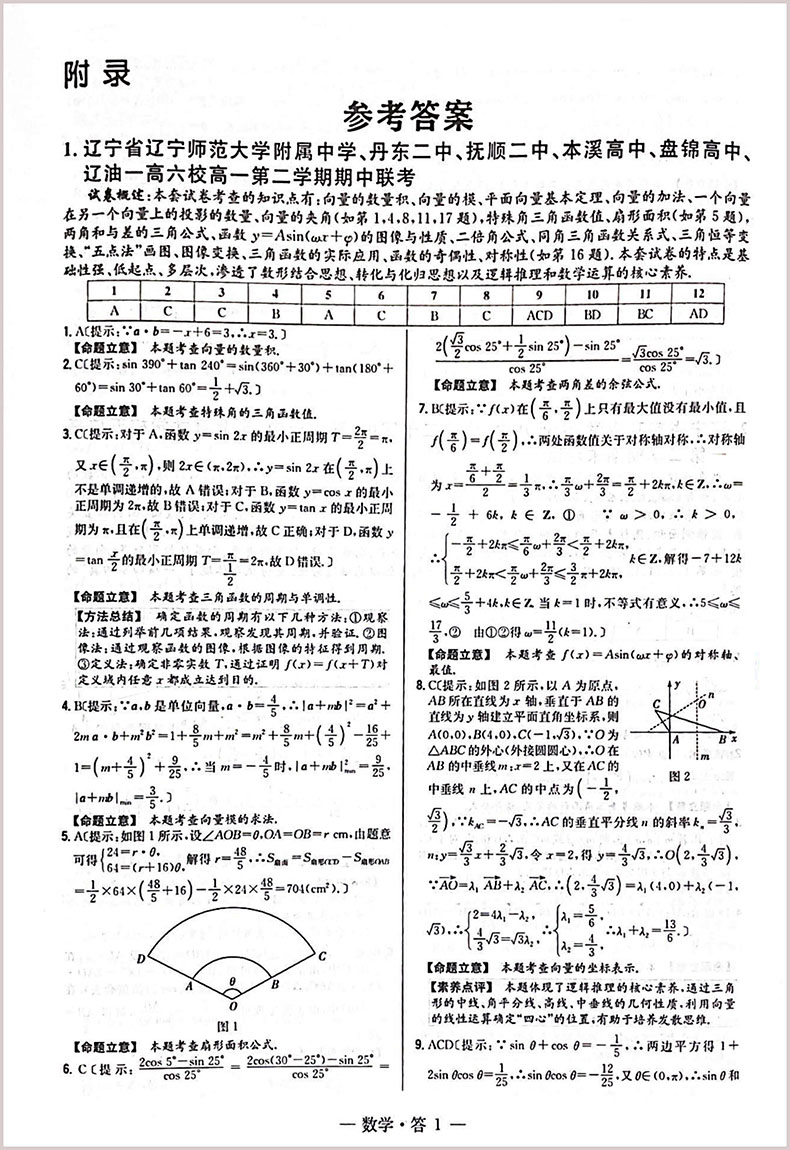 附 录
参考答案
1. 辽宁省辽宁师范大学附属中学、丹东二中、抚顺二中、本溪高中、盘锦高中、
辽油一高六校高一第二学期期中联考
试卷概述:本套试卷考查的知识点有:向量的数量积、向量的模、平面向量基本定理、向量的加法、一个向量
在另一个向量上的投影的数量、向量的夹角(如第1,4,8,11,17题),特殊角三角函数值、扇形面积(如第5题),
两角和与差的三角公式、函数 y=Asin(ωx+φ)的图像与性质、二倍角公式、同角三角函数关系式、三角恒等变
换、“五点法”画图、图像变换、三角函数的实际应用、函数的奇偶性、对称性(如第16题). 本套试卷的特点是基
础性强、低起点、多层次,渗透了数形结合思想、转化与化归思想以及逻辑推理和数学运算的核心素养.
1 2 3 4 5 6 7 8 9 10 11 12
A C C B A C B C ACD BD BC AD
1. A〔提示:∵a·b=-x+6=3,∴x=3.〕
【命题立意】 本题考查向量的数量积.
2. C〔提示:sin 390°+tan 240°=sin(360°+30°)+tan(180°+
60°)=sin 30°+tan 60°=1/2+√3.〕
【命题立意】 本题考查特殊角的三角函数值.
3. C〔提示:对于A,函数 y=sin 2x的最小正周期 T=2π/2=π,
又 x∈(π/2,π),则2x∈(π,2π),∴y=sin 2x在(π/2,π)上
不是单调递增的,故A错误;对于B,函数 y=cos x的最小
正周期为2π,故B错误;对于C,函数 y=tan x的最小正周
期为π,且在(π/2,π)上单调递增,故C正确;对于D,函数 y
=tan x/2的最小正周期 T=π/(1/2)=2π,故D错误.〕
【命题立意】 本题考查三角函数的周期与单调性.
【方法总结】 确定函数的周期有以下几种方法:①观察
法:通过列举前几项结果,观察发现其周期,并验证.②图
像法:通过观察函数的图像,根据图像的特征得到周期.
③定义法:确定非零实数 T,通过证明 f(x)=f(x+T)对
定义域内任意 x 都成立达到目的.
4. B〔提示:∵a,b是单位向量,a·b=4/5,∴|a+mb|²=a²+
2ma·b+m²b²=1+8/5m+m²=m²+8/5m+(4/5)²-16/25+
1=(m+4/5)²+9/25,∴当 m=-4/5时,|a+mb|²min=9/25,
|a+mb|min=3/5.〕
【命题立意】 本题考查向量模的求法.
5. A〔提示:如图1所示,设∠AOB=θ,OA=OB=r cm,由题意
可得{24=r·θ, 64=(r+16)θ, 解得 r=48/5,∴S扇面=S扇形COD-S扇形OAB
=1/2×64×(48/5+16)-1/2×24×48/5=704(cm²).〕
D A θ B C
O
图1
【命题立意】 本题考查扇形面积公式.
6. C〔提示:(2cos 5°-sin 25°)/cos 25° = (2cos(30°-25°)-sin 25°)/cos 25° =
(2(√3/2cos 25°+1/2sin 25°)-sin 25°)/cos 25°=√3cos 25°/cos 25°=√3.〕
【命题立意】 本题考查两角差的余弦公式.
7. B〔提示:∵f(x)在(π/6,π/2)上只有最大值没有最小值,且
f(π/6)=f(π/2),∴两处函数值关于对称轴对称,∴对称轴
为 x=(π/6+π/2)/2=1/3π,∴π/3ω+2π/3=π/2+2kπ,k∈Z,∴ω=
-1/2+6k,k∈Z, ① ∵ω>0,∴k>0,
∴{-π/2+2kπ≤π/6ω+2π/3<π/2+2kπ, π/2+2kπ<π/2ω+2π/3≤3/2π+2kπ, k∈Z,解得-7+12k
≤ω≤5/3+4k,k∈Z. 当 k=1时,不等式有意义,∴5≤ω≤
17/3,② 由①②得 ω=11/2(k=1).〕
【命题立意】 本题考查 f(x)=Asin(ωx+φ)的对称轴、
最值.
8. C〔提示:如图2所示,以A为原点,
AB所在直线为x轴,垂直于AB的
直线为y轴建立平面直角坐标系,则
A(0,0),B(4,0),C(-1,√3),∵O为
△ABC的外心(外接圆圆心),∴O在
AB的中垂线m:x=2上,又在AC的
中垂线 n 上,AC的中点为(-1/2,
y n C O A B x m
图2
√3/2),∵kAC=-√3,∴AC的垂直平分线 n 的斜率 kn=√3/3,
n:y=√3/3x+2/3√3,令 x=2,得 y=4/3√3,∴O(2,4/3√3),
∵AO=λ₁AB+λ₂AC,∴(2,4/3√3)=λ₁(4,0)+λ₂(-1,
√3),∴{2=4λ₁-λ₂, 4/3√3=√3λ₂, ∴{λ₁=5/6, λ₂=4/3, ∴λ₁+λ₂=13/6.〕
【命题立意】 本题考查向量的坐标表示.
【素养点评】 本题体现了逻辑推理的核心素养,通过三角
形的中线、角平分线、高线、中垂线的几何性质,利用向量
的线性运算确定“四心”的位置,有助于培养发散思维.
9. ACD〔提示:∵sin θ+cos θ=-1/5,∴两边平方得1+
2sin θcos θ=1/25,∴sin θcos θ=-12/25,又θ∈(0,π),∴sin θ和
— 数学·答 1 —